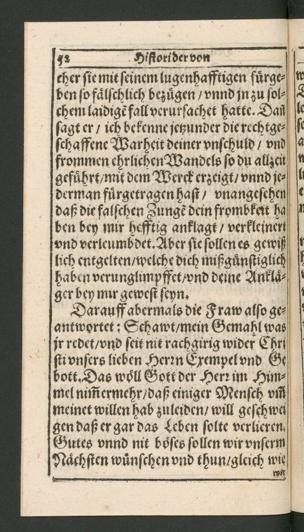 52 Histori der von
cher sie mit seinem lugenhafftigen fürge-
ben so fälschlich bezügen / vnnd jn zu sol-
chem laidigē fall verursachet hatte. Dañ
sagt er / ich bekenne jetzunder die rechtge-
schaffene Warheit deiner vnschuld / vnd
frommen ehrlichen Wandels so du allzeit
geführt / mit dem Werck erzeigt / vnnd je-
derman fürgetragen hast / vnangesehen
daß die falschen Zungē dein frymbkeit ha
ben bey mir hefftig anklagt / verkleinert
vnd verleumbdet. Aber sie sollen es gewiß
lich entgelten / welche dich mißgünstiglich
haben verunglimpffet / vnd deine Anklä-
ger bey mir gewest seyn.
Darauff abermals die Fraw also ge-
antwortet: Schawt / mein Gemahl was
jr redet / vnd seit nit rachgirig wider Chri
sti vnsers lieben Herrn Exempel vnd Ge
bott. Das wöll Gott der Herr im Him-
mel nim̄ermehr / daß einiger Mensch vm̄
meinet willen hab zuleiden / will geschwei
gen daß er gar das Leben solte verlieren.
Gutes vnnd nit böses sollen wir vnserm
Nächsten wünschen vnd thun / gleich wie